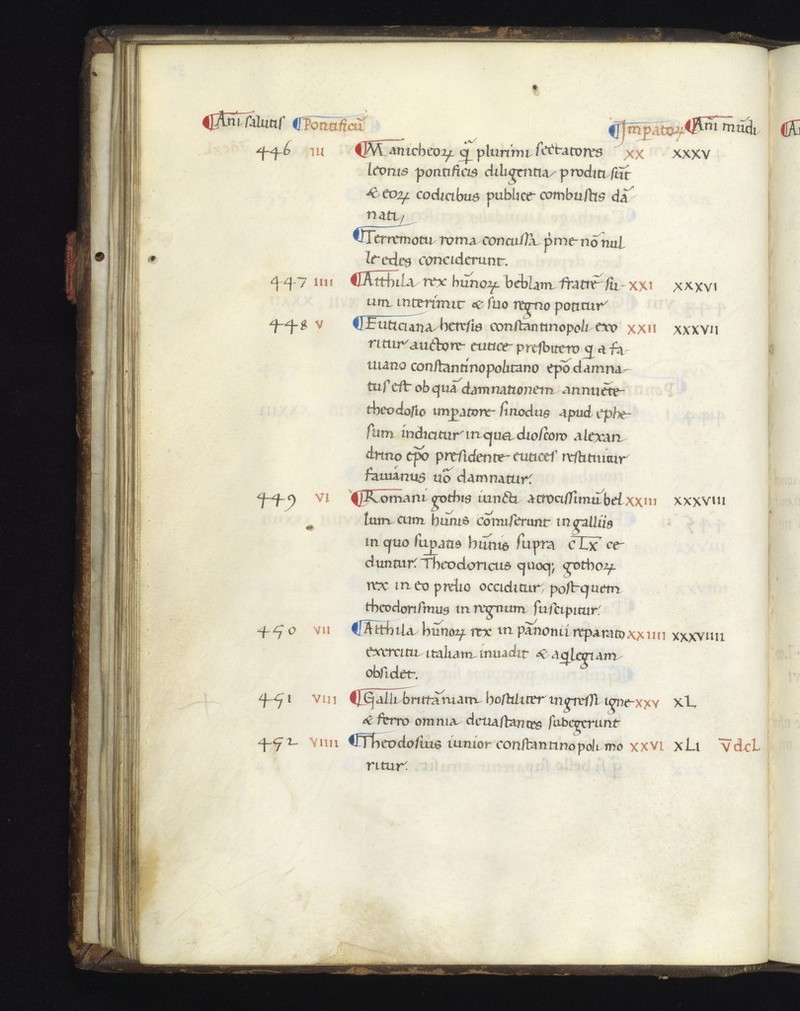 Anī salutis Pontificū Impatoꝝ Anī mūdi
446 III Manicheoꝝ qꝫ plurimi sectatores XX XXXV
leonis pontificis diligentia proditi sūt
& eoꝝ codicibus publice combustis dā
nati,
Terremotu roma concussa p̄me nō nul
le edes conciderunt.
447 IIII Atthila rex hūnoꝝ beblam fratrē su XXI XXXVI
um interimit & suo regno potitur
448 V Euticiana heresis constantinopoli exo XXII XXXVII
ritur auctore eutice presbitero q a fa
uiano constantinopolitano ep̄o damna
tus est ob quā damnationem annuēte
theodosio impatore sinodus apud ephe
sum indicitur in qua dioscoro alexan
drino ep̄o presidente eutices restituitur
fauianus uō damnatur.
449 VI Romani gothis iuncti atrocissimū bel XXIII XXXVIII
lum cum hūnis cōmiserunt in galliis
in quo supatis hūnis supra c̄Lx̄ ce
duntur. Theodoricus quoqꝫ gothoꝝ
rex in eo prelio occiditur, post quem
theodorismus in regnum suscipitur.
450 VII Atthila hūnoꝝ rex in pānonii reparato XXIIII XXXVIIII
exercitu italiam inuadit & aqlegiam
obsidet.
451 VIII Galli brittāniam hostiliter ingressi igne XXV XL
& ferro omnia deuastantes subegerunt
452 VIIII Theodosius iunior constantinopoli mo XXVI XLI V̄dcL
ritur.